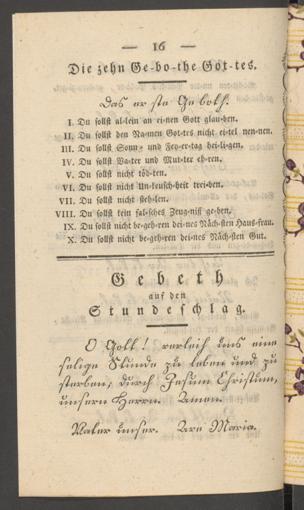 — 16 —
Die zehn Ge-bo-the Got-tes.
Das er ste Geboth.
I. Du sollst al-lein an ei-nen Gott glau-ben.
II. Du sollst den Na-men Got-tes nicht ei-tel nen-nen.
III. Du sollst Sonn- und Fey-er-tag hei-li-gen.
IV. Du sollst Va-ter und Mut-ter eh-ren.
V. Du sollst nicht töd-ten.
VI. Du sollst nicht Un-keusch-heit trei-ben.
VII. Du sollst nicht steh-len.
VIII. Du sollst kein fal-sches Zeug-niß ge-ben.
IX. Du sollst nicht be-geh-ren dei-nes Näch-sten Haus-frau.
X. Du sollst nicht be-geh-ren dei-nes Näch-sten Gut.
Gebeth
auf den
Stundeschlag.
O Gott! verleih uns eine
selige Stunde zu leben und zu
sterben, durch Jesum Christum,
unsern Herrn. Amen.
Vater unser. Ave Maria.